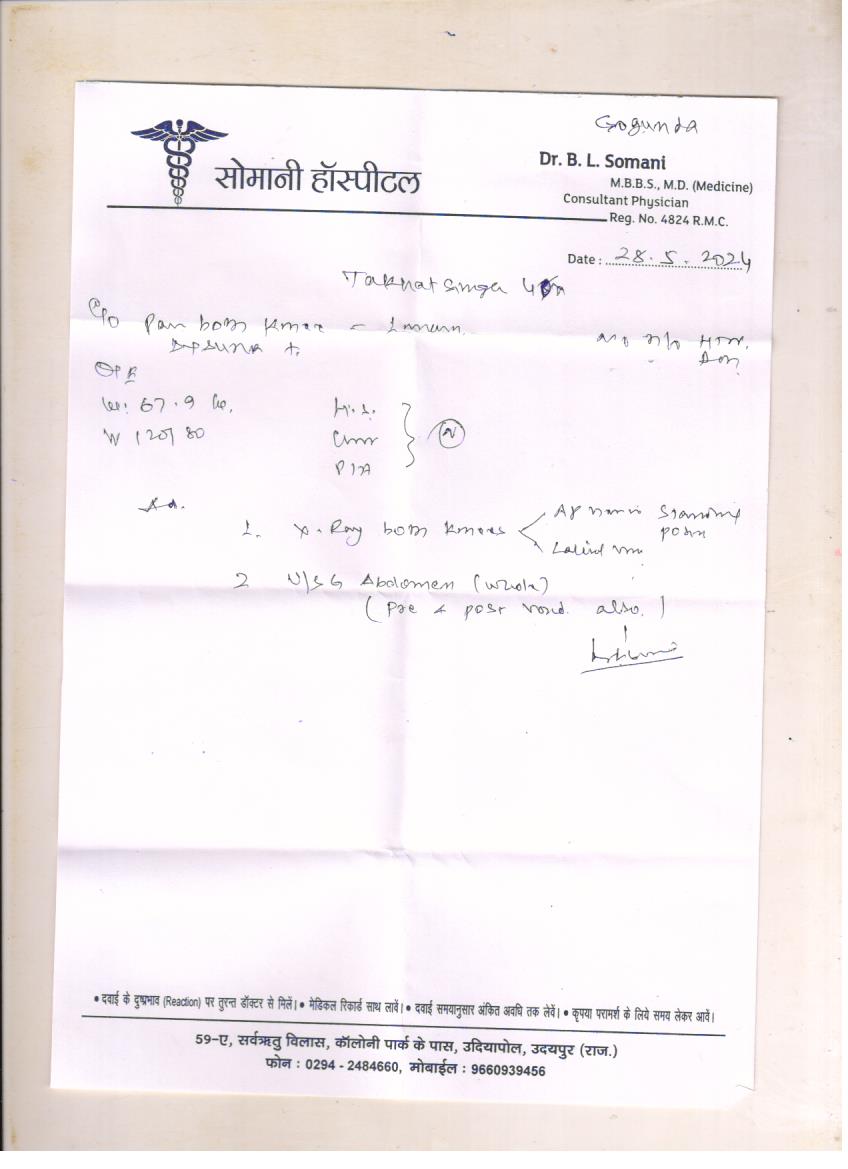 Gogunda
सोमानी हॉस्पीटल
Dr. B. L. Somani
M.B.B.S., M.D. (Medicine)
Consultant Physician
Reg. No. 4824 R.M.C.
Date : 28.5.2024
Takhat Singh
C/o Pain both knee - 1
no H/o HTN.
DM
O/E
Wt. 67.9 kg.
120/80
H.S.
Chest
P/A
N
Ad.
1. X-Ray both knees
AP view in standing
position
Lateral view
2 U/S G Abdomen (whole)
(Pre & post void also)
• दवाई के दुष्प्रभाव (Reaction) पर तुरन्त डॉक्टर से मिलें। • मेडिकल रिकार्ड साथ लावें। • दवाई समयानुसार अंकित अवधि तक लेवें। • कृपया परामर्श के लिये समय लेकर आवें।
59-ए, सर्वऋतु विलास, कॉलोनी पार्क के पास, उदियापोल, उदयपुर (राज.)
फोन : 0294 - 2484660, मोबाईल : 9660939456